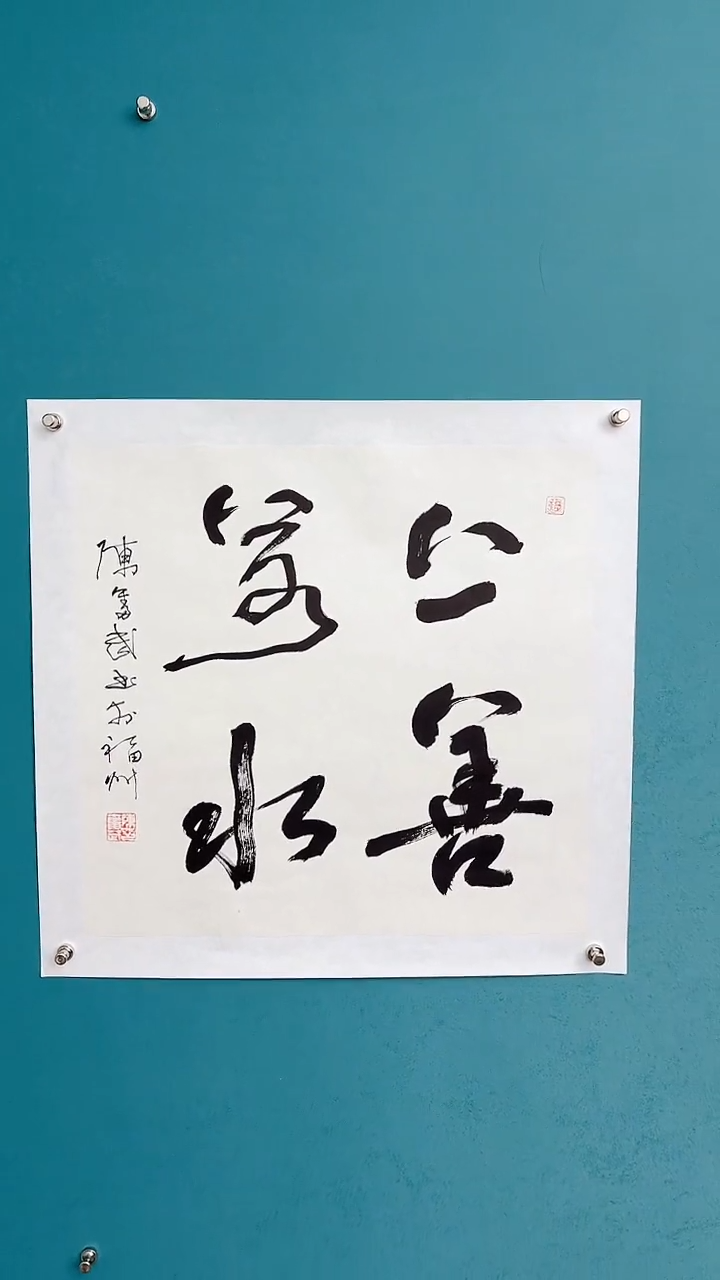 上善
若水
陳奮武書於福州